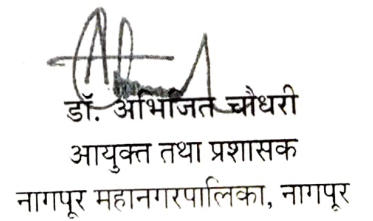 डॉ. अभिजित चौधरी
आयुक्त तथा प्रशासक
नागपूर महानगरपालिका, नागपूर